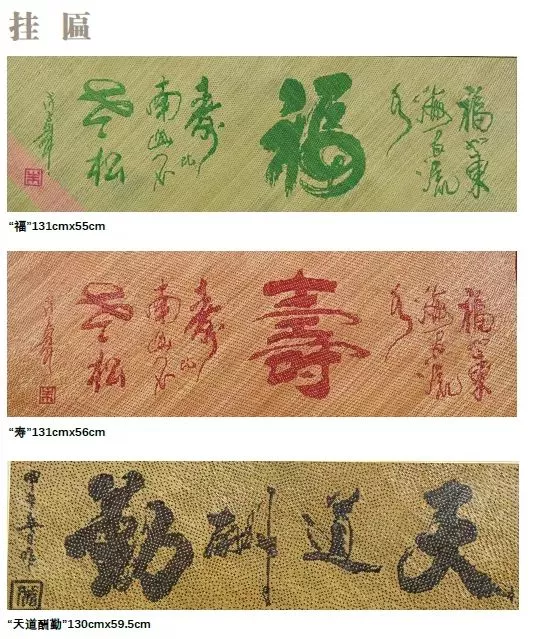 挂 匾
福如東
海长流
水
福
壽比
南山不
老松
“福”131cmx55cm
福如東
海长流
水
壽
壽比
南山不
老松
“寿”131cmx56cm
天道酬勤
“天道酬勤”130cmx59.5cm